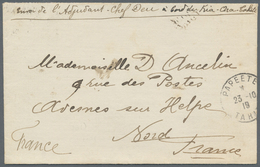 Envoi de l'Adjudant-Chef à bord du
Mademoiselle D Ancelin
4 rue des Postes
Avesnes sur Helpe
Nord
France
France
PAPEETE
23-10
19
TAHITI